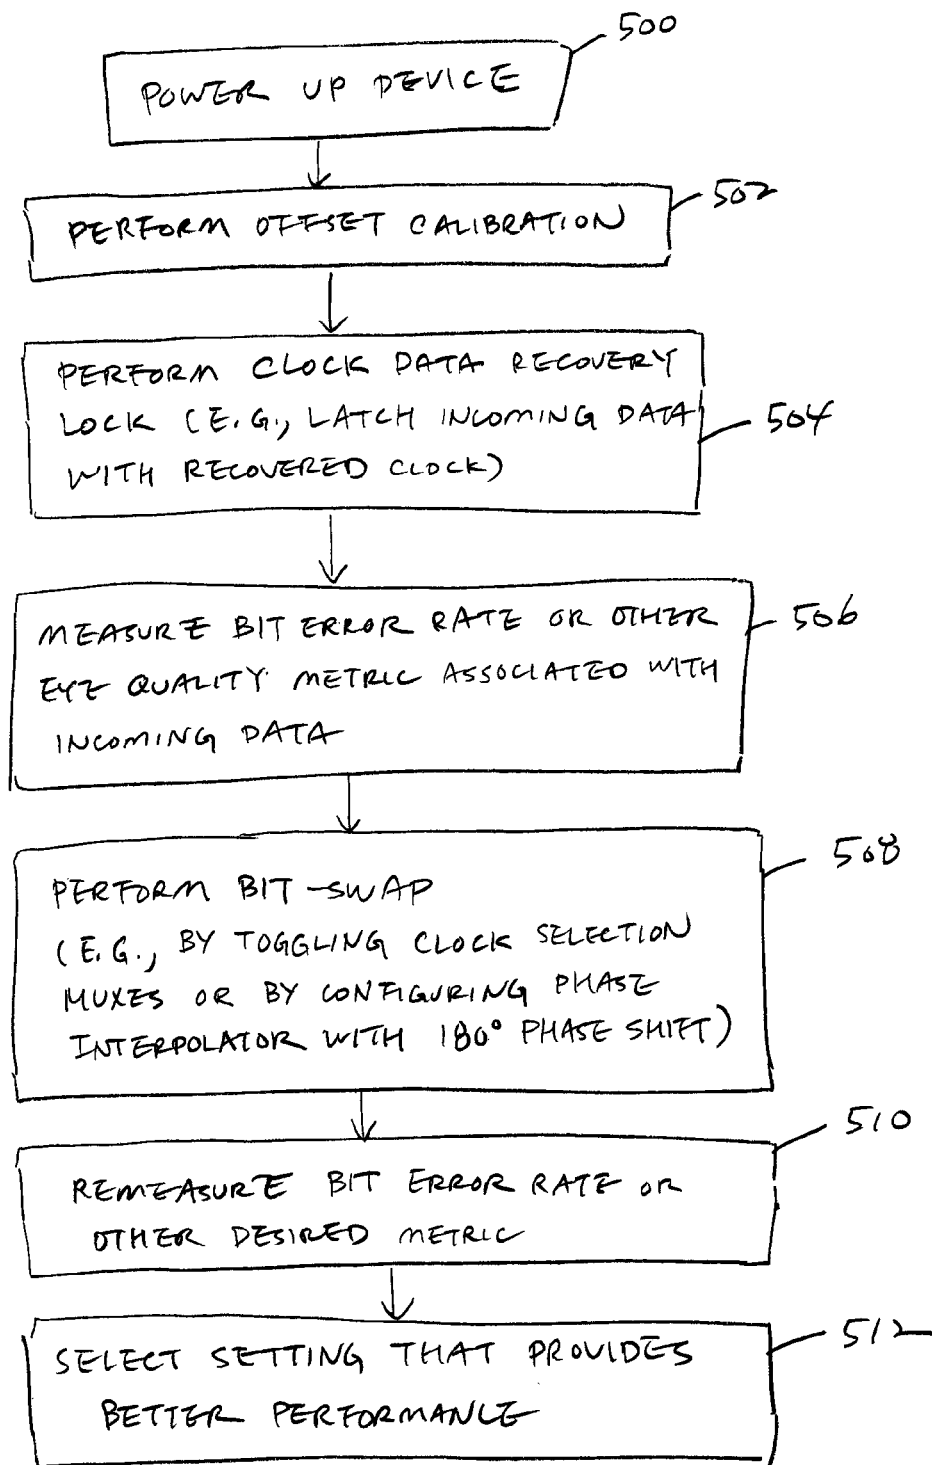 500
POWER UP DEVICE
502
PERFORM OFFSET CALIBRATION
PERFORM CLOCK DATA RECOVERY
LOCK (E.G., LATCH INCOMING DATA
WITH RECOVERED CLOCK)
504
MEASURE BIT ERROR RATE OR OTHER
EYE QUALITY METRIC ASSOCIATED WITH
INCOMING DATA
506
508
PERFORM BIT-SWAP
(E.G., BY TOGGLING CLOCK SELECTION
MUXES OR BY CONFIGURING PHASE
INTERPOLATOR WITH 180° PHASE SHIFT)
510
REMEASURE BIT ERROR RATE OR
OTHER DESIRED METRIC
512
SELECT SETTING THAT PROVIDES
BETTER PERFORMANCE